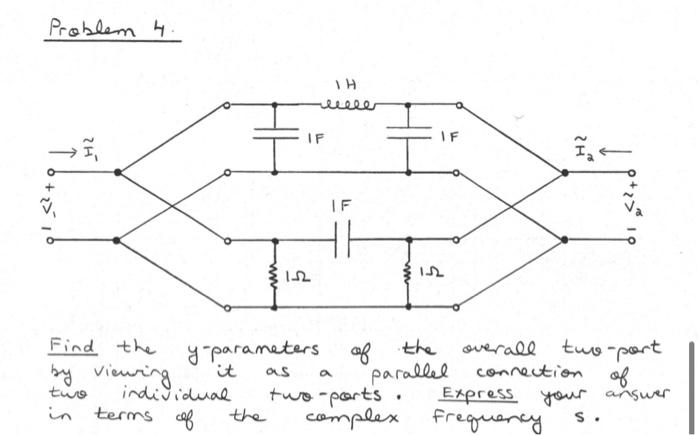 Problem 4.
1H
1F
1F
→ Ĩ₁
Ĩ₂ ←
+
Ṽ₁
-
+
Ṽ₂
-
1F
1Ω
1Ω
Find the y-parameters of the overall two-port
by viewing it as a parallel connection of
two individual two-ports. Express your answer
in terms of the complex frequency s.